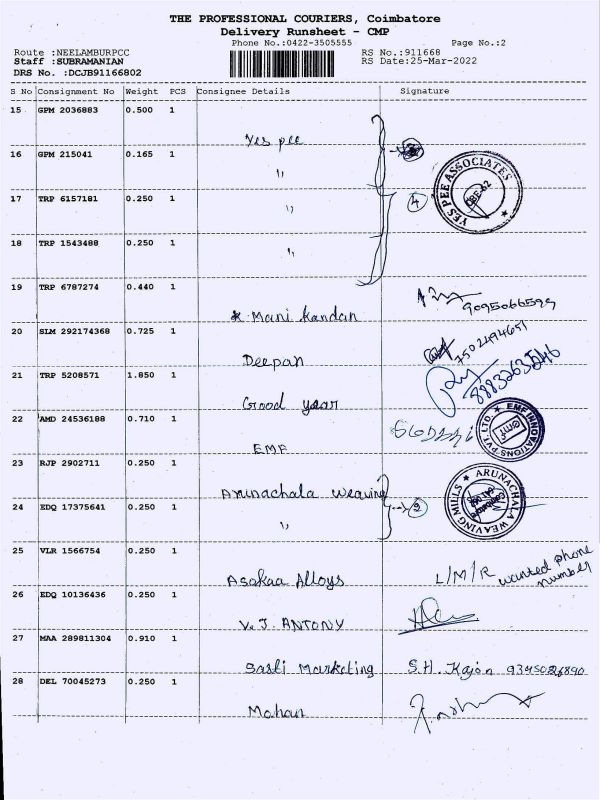 THE PROFESSIONAL COURIERS, Coimbatore
Delivery Runsheet - CMP
Phone No.:0422-3505555 Page No.:2
Route :NEELAMBURPCC RS No.:911668
Staff :SUBRAMANIAN RS Date:25-Mar-2022
DRS No. :DCJB91166802
S No Consignment No Weight PCS Consignee Details Signature
15 GPM 2036883 0.500 1
Yes pee
16 GPM 215041 0.165 1
"
YES PEE ASSOCIATES
CBE-62
17 TRP 6157181 0.250 1
" 4
18 TRP 1543488 0.250 1
"
19 TRP 6787274 0.440 1
K. Mani Kandan 9095066599
20 SLM 292174368 0.725 1
Deepan 7502494651
21 TRP 5208571 1.850 1
Good year
22 AMD 24536188 0.710 1
EMF
EMF INNOVATIONS PVT. LTD.
emf
23 RJP 2902711 0.250 1
Arunachala Weaving
ARUNACHALA WEAVING MILLS
24 EDQ 17375641 0.250 1
" 2
25 VLR 1566754 0.250 1
Asokaa Alloys L/M/R wanted phone number
26 EDQ 10136436 0.250 1
V. J. ANTONY
27 MAA 289811304 0.910 1
Sasti Marketing S.H. Kajon
28 DEL 70045273 0.250 1
Mohan